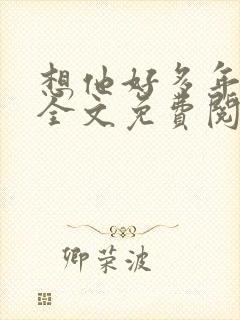 想他好多年
全文免費閱
卿荣波